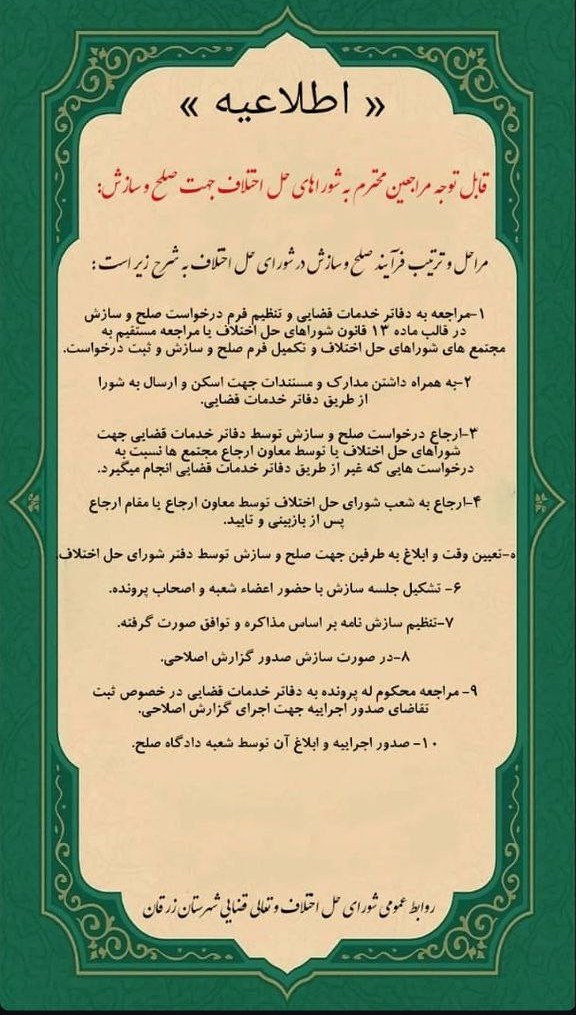 « اطلاعیه »
قابل توجه مراجعین محترم به شوراهای حل اختلاف جهت صلح و سازش:
مراحل و ترتیب فرآیند صلح و سازش در شورای حل اختلاف به شرح زیر است:
۱-مراجعه به دفاتر خدمات قضایی و تنظیم فرم درخواست صلح و سازش
در قالب ماده ۱۳ قانون شوراهای حل اختلاف یا مراجعه مستقیم به
مجتمع های شوراهای حل اختلاف و تکمیل فرم صلح و سازش و ثبت درخواست.
۲-به همراه داشتن مدارک و مستندات جهت اسکن و ارسال به شورا
از طریق دفاتر خدمات قضایی.
۳-ارجاع درخواست صلح و سازش توسط دفاتر خدمات قضایی جهت
شوراهای حل اختلاف یا توسط معاون ارجاع مجتمع ها نسبت به
درخواست هایی که غیر از طریق دفاتر خدمات قضایی انجام میگیرد.
۴-ارجاع به شعب شورای حل اختلاف توسط معاون ارجاع یا مقام ارجاع
پس از بازبینی و تایید.
۵-تعیین وقت و ابلاغ به طرفین جهت صلح و سازش توسط دفتر شورای حل اختلاف.
۶- تشکیل جلسه سازش با حضور اعضاء شعبه و اصحاب پرونده.
۷-تنظیم سازش نامه بر اساس مذاکره و توافق صورت گرفته.
۸-در صورت سازش صدور گزارش اصلاحی.
۹- مراجعه محکوم له پرونده به دفاتر خدمات قضایی در خصوص ثبت
تقاضای صدور اجراییه جهت اجرای گزارش اصلاحی.
۱۰- صدور اجراییه و ابلاغ آن توسط شعبه دادگاه صلح.
روابط عمومی شورای حل اختلاف و تعالی قضایی شهرستان زرقان